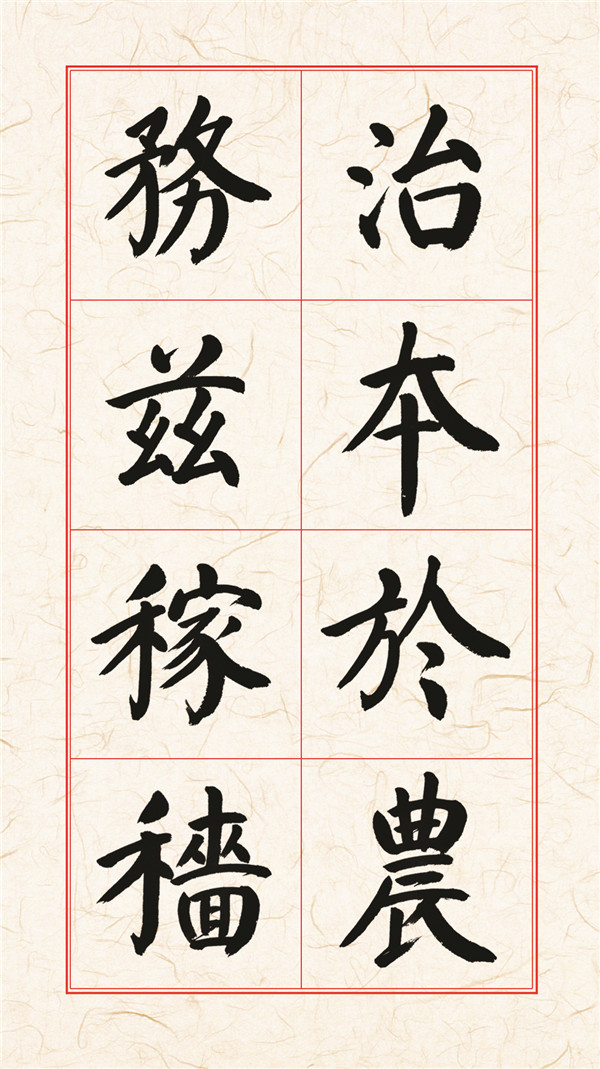 治本於農
務茲稼穡